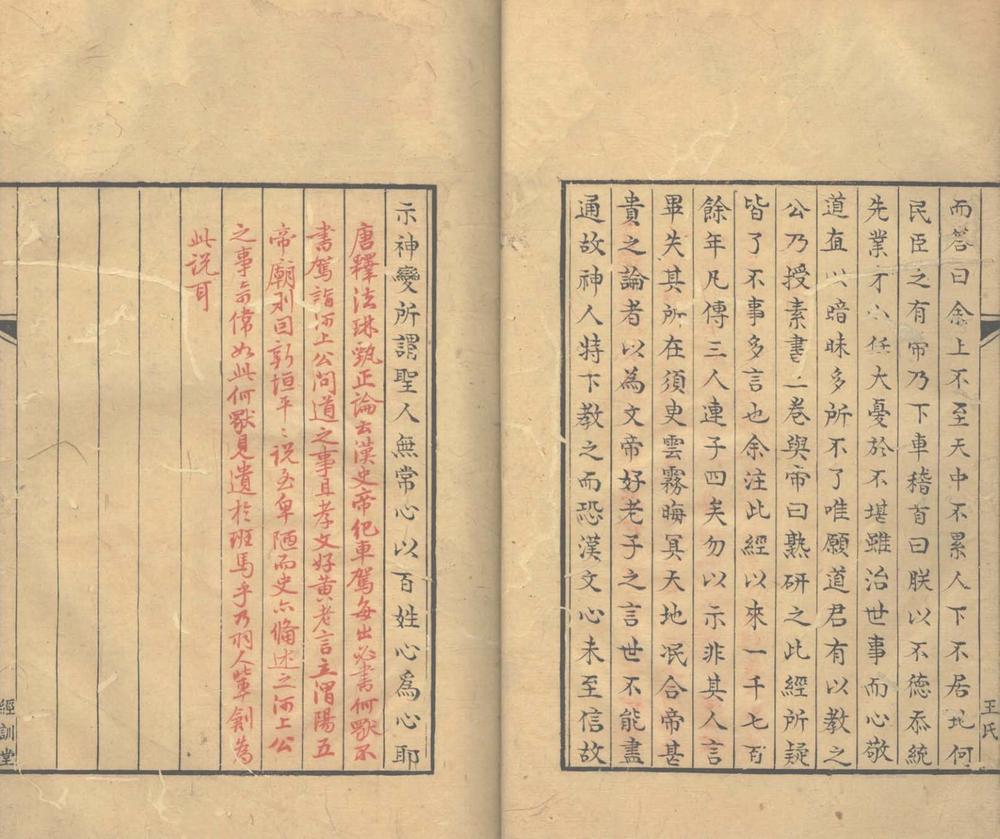 而答曰余上不至天中不累人下不居地何
民臣之有帝乃下車稽首曰朕以不德忝統
先業才小任大憂於不堪雖治世事而心敬
道直以暗昧多所不了唯願道君有以教之
公乃授素書二卷與帝曰熟研之此經所疑
皆了不事多言也余注此經以來一千七百
餘年凡傳三人連子四矣勿以示非其人言
畢失其所在須吏雲霧晦冥天地泯合帝甚
貴之論者以為文帝好老子之言世不能盡
通故神人特下教之而恐漢文心未至信故
王氏
示神變所謂聖人無常心以百姓心為心耶
唐釋法琳甄正論云漢史帝紀車駕每出必書何獸不
書駕詣河上公問道之事且孝文好黃老言立渭陽五
帝廟引回新垣平〻說至卑陋而史亦備述之河上公
之事奇偉如此何獸見遺於班馬乎乃羽人輩創為
此說耳
經訓堂